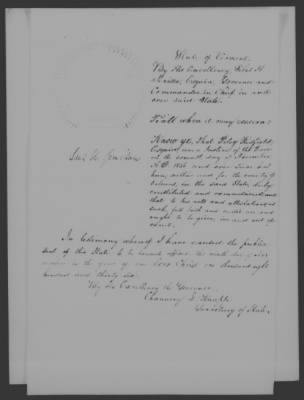 State of Vermont.
By His Excellency, Silas H.
Jenison, Esquire, Governor and
Commander in Chief in and
over said State.
To all whom it may concern:
Know ye, That
Esquire, was a Justice of the Peace
on the seventh day of November
A.D. 1836 and ever since has
been, within and for the county of
in the said State, duly
constituted and commissioned and
that to his acts and attestations as
such, full faith and credit are and
ought to be given, in and out of
court.
Silas H. Jenison
In testimony whereof I have caused the public
seal of this State to be hereunto affixed the ninth day of
in the year of our Lord Christ on thousand eight
hundred and thirty six.
By His Excellency the Governor.
Chauncey L. Knapp
Secretary of State.